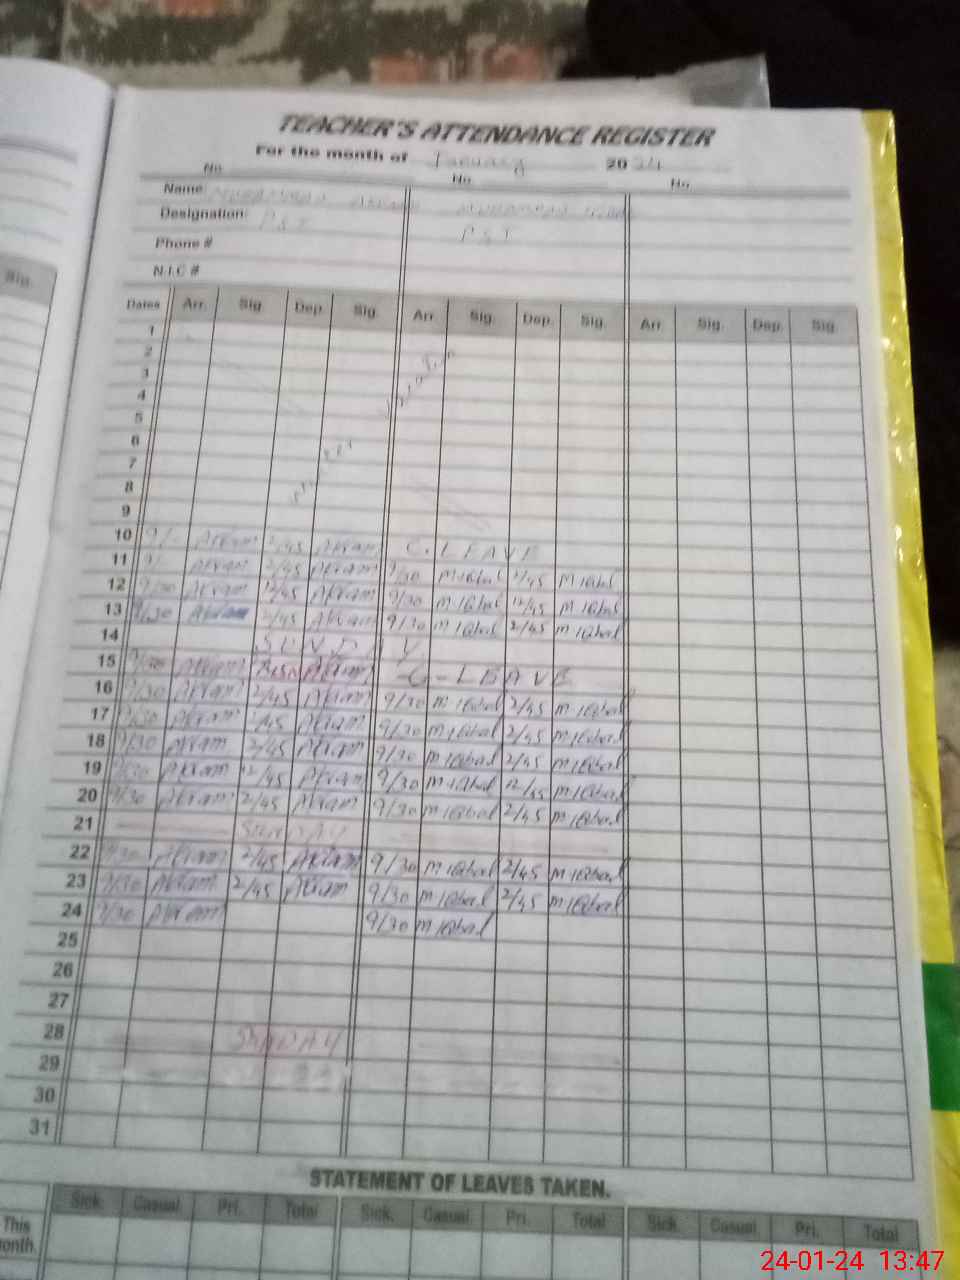 TEACHER'S ATTENDANCE REGISTER
For the month of January 2024
No. No. No.
Name: MUHAMMAD AKRAM MUHAMMAD IQBAL
Designation: P.S.T P.S.T
Phone #
N.I.C #
Sig.
Dates Arr. Sig. Dep. Sig. Arr. Sig. Dep. Sig. Arr. Sig. Dep. Sig.
1
2
3
4
5
6
7
8
9
Winter Vacation
10 9/- Akram 2/45 Akram C. LEAVE
11 9/- Akram 2/45 Akram 9/30 M.Iqbal 2/45 M.Iqbal
12 9/30 Akram 12/45 Akram 9/30 M.Iqbal 12/45 M.Iqbal
13 9/30 Akram 2/45 Akram 9/30 M.Iqbal 2/45 M.Iqbal
14 SUNDAY
15 9/30 Akram Akram C-LEAVE
16 9/30 Akram 2/45 Akram 9/30 M.Iqbal 2/45 M.Iqbal
17 9/30 Akram 2/45 Akram 9/30 M.Iqbal 2/45 M.Iqbal
18 9/30 Akram 2/45 Akram 9/30 M.Iqbal 2/45 M.Iqbal
19 9/30 Akram 12/45 Akram 9/30 M.Iqbal 12/45 M.Iqbal
20 9/30 Akram 2/45 Akram 9/30 M.Iqbal 2/45 M.Iqbal
21 SUNDAY
22 9/30 Akram 2/45 Akram 9/30 M.Iqbal 2/45 M.Iqbal
23 9/30 Akram 2/45 Akram 9/30 M.Iqbal 2/45 M.Iqbal
24 9/30 Akram 9/30 M.Iqbal
25
26
27
28 SUNDAY
29
30
31
STATEMENT OF LEAVES TAKEN.
Sick. Casual. Pri. Total Sick. Casual. Pri. Total Sick. Casual. Pri. Total
This
month.
24-01-24 13:47